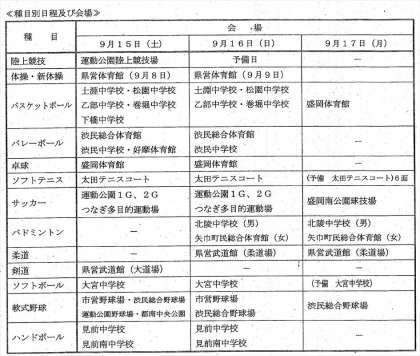 ≪種目別日程及び会場≫
種　目 会　場
９月１５日（土） ９月１６日（日） ９月１７日（月）
陸上競技 運動公園陸上競技場 予備日 －
体操・新体操 県営体育館（９月８日） 県営体育館（９月９日）
バスケットボール 土淵中学校・松園中学校 土淵中学校・松園中学校 盛岡体育館
乙部中学校・巻堀中学校 乙部中学校・巻堀中学校
下橋中学校
バレーボール 渋民総合体育館 渋民総合体育館 －
渋民中学校・好摩体育館 渋民中学校
卓球 盛岡体育館 盛岡体育館 －
ソフトテニス 太田テニスコート 太田テニスコート （予備　太田テニスコート）６面
サッカー 運動公園１Ｇ、２Ｇ 運動公園１Ｇ、２Ｇ 盛岡南公園球技場
つなぎ多目的運動場 つなぎ多目的運動場
バドミントン － 北陵中学校（男） 北陵中学校（男）
矢巾町民総合体育館（女） 矢巾町民総合体育館（女）
柔道 － 県営武道館（柔道場） 県営武道館（柔道場）
剣道 県営武道館（大道場） － －
ソフトボール 大宮中学校 大宮中学校 （予備　大宮中学校）
軟式野球 市営野球場・渋民総合野球場 市営野球場 渋民総合野球場
運動公園野球場・都南中央公園 渋民総合野球場
ハンドボール 見前中学校 見前中学校 －
見前南中学校 見前南中学校